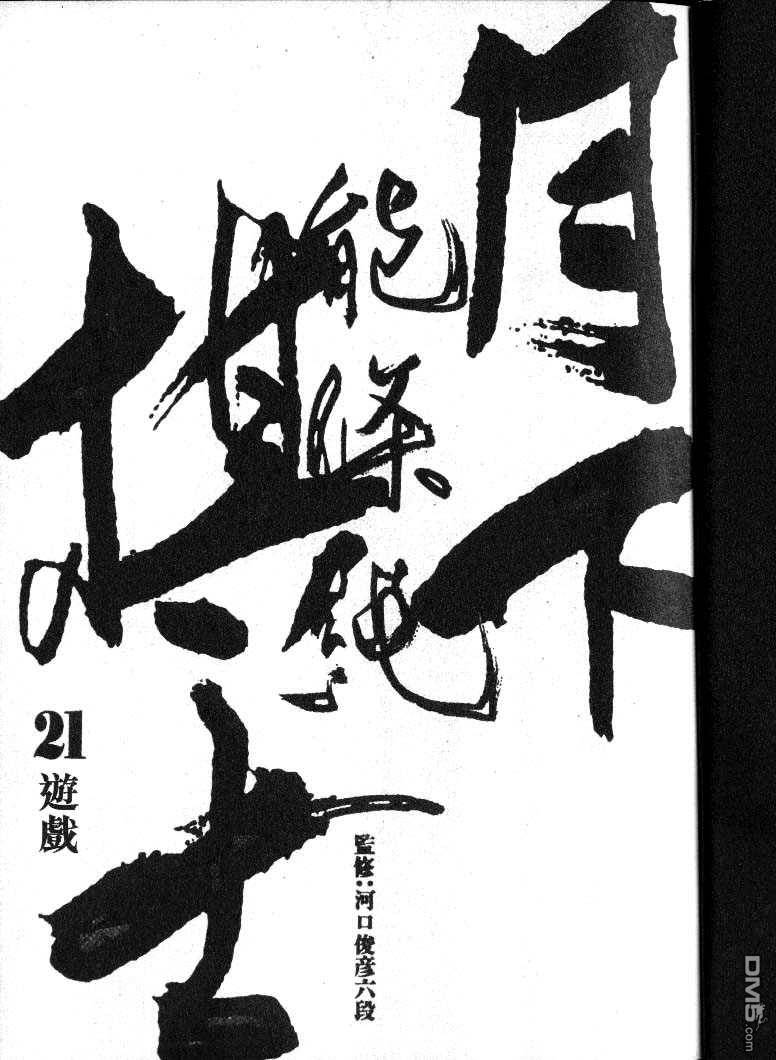 月下
棋士
能條純一
21
遊戲
監修:河口俊彦六段
DM5.com